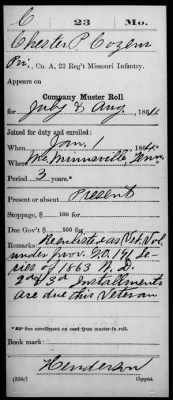 C 23 Mo.
Chester P. Cozens
Pvt., Co. A, 23 Reg't Missouri Infantry.
Company Muster Roll
for July & Aug, 1864
Joined for duty and enrolled:
When Jan. 1, 1864.
Where McMinnsville, Tenn.
Period 3 years.*
Present or absent Present
Stoppage, $ 100 for
Due Gov't $ 100 for
Remarks: Reenlisted as Vet. Vol.
under prov. G.O. 191 Se-
ries of 1863 W.D.
2nd & 3d Installments
are due this Veteran
*See enrollment on card from muster-in roll.
Book mark:
Henderson
(858c) Copyist.